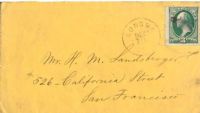 Mr. H. M. Landsberger
#526 - California Street
San Francisco